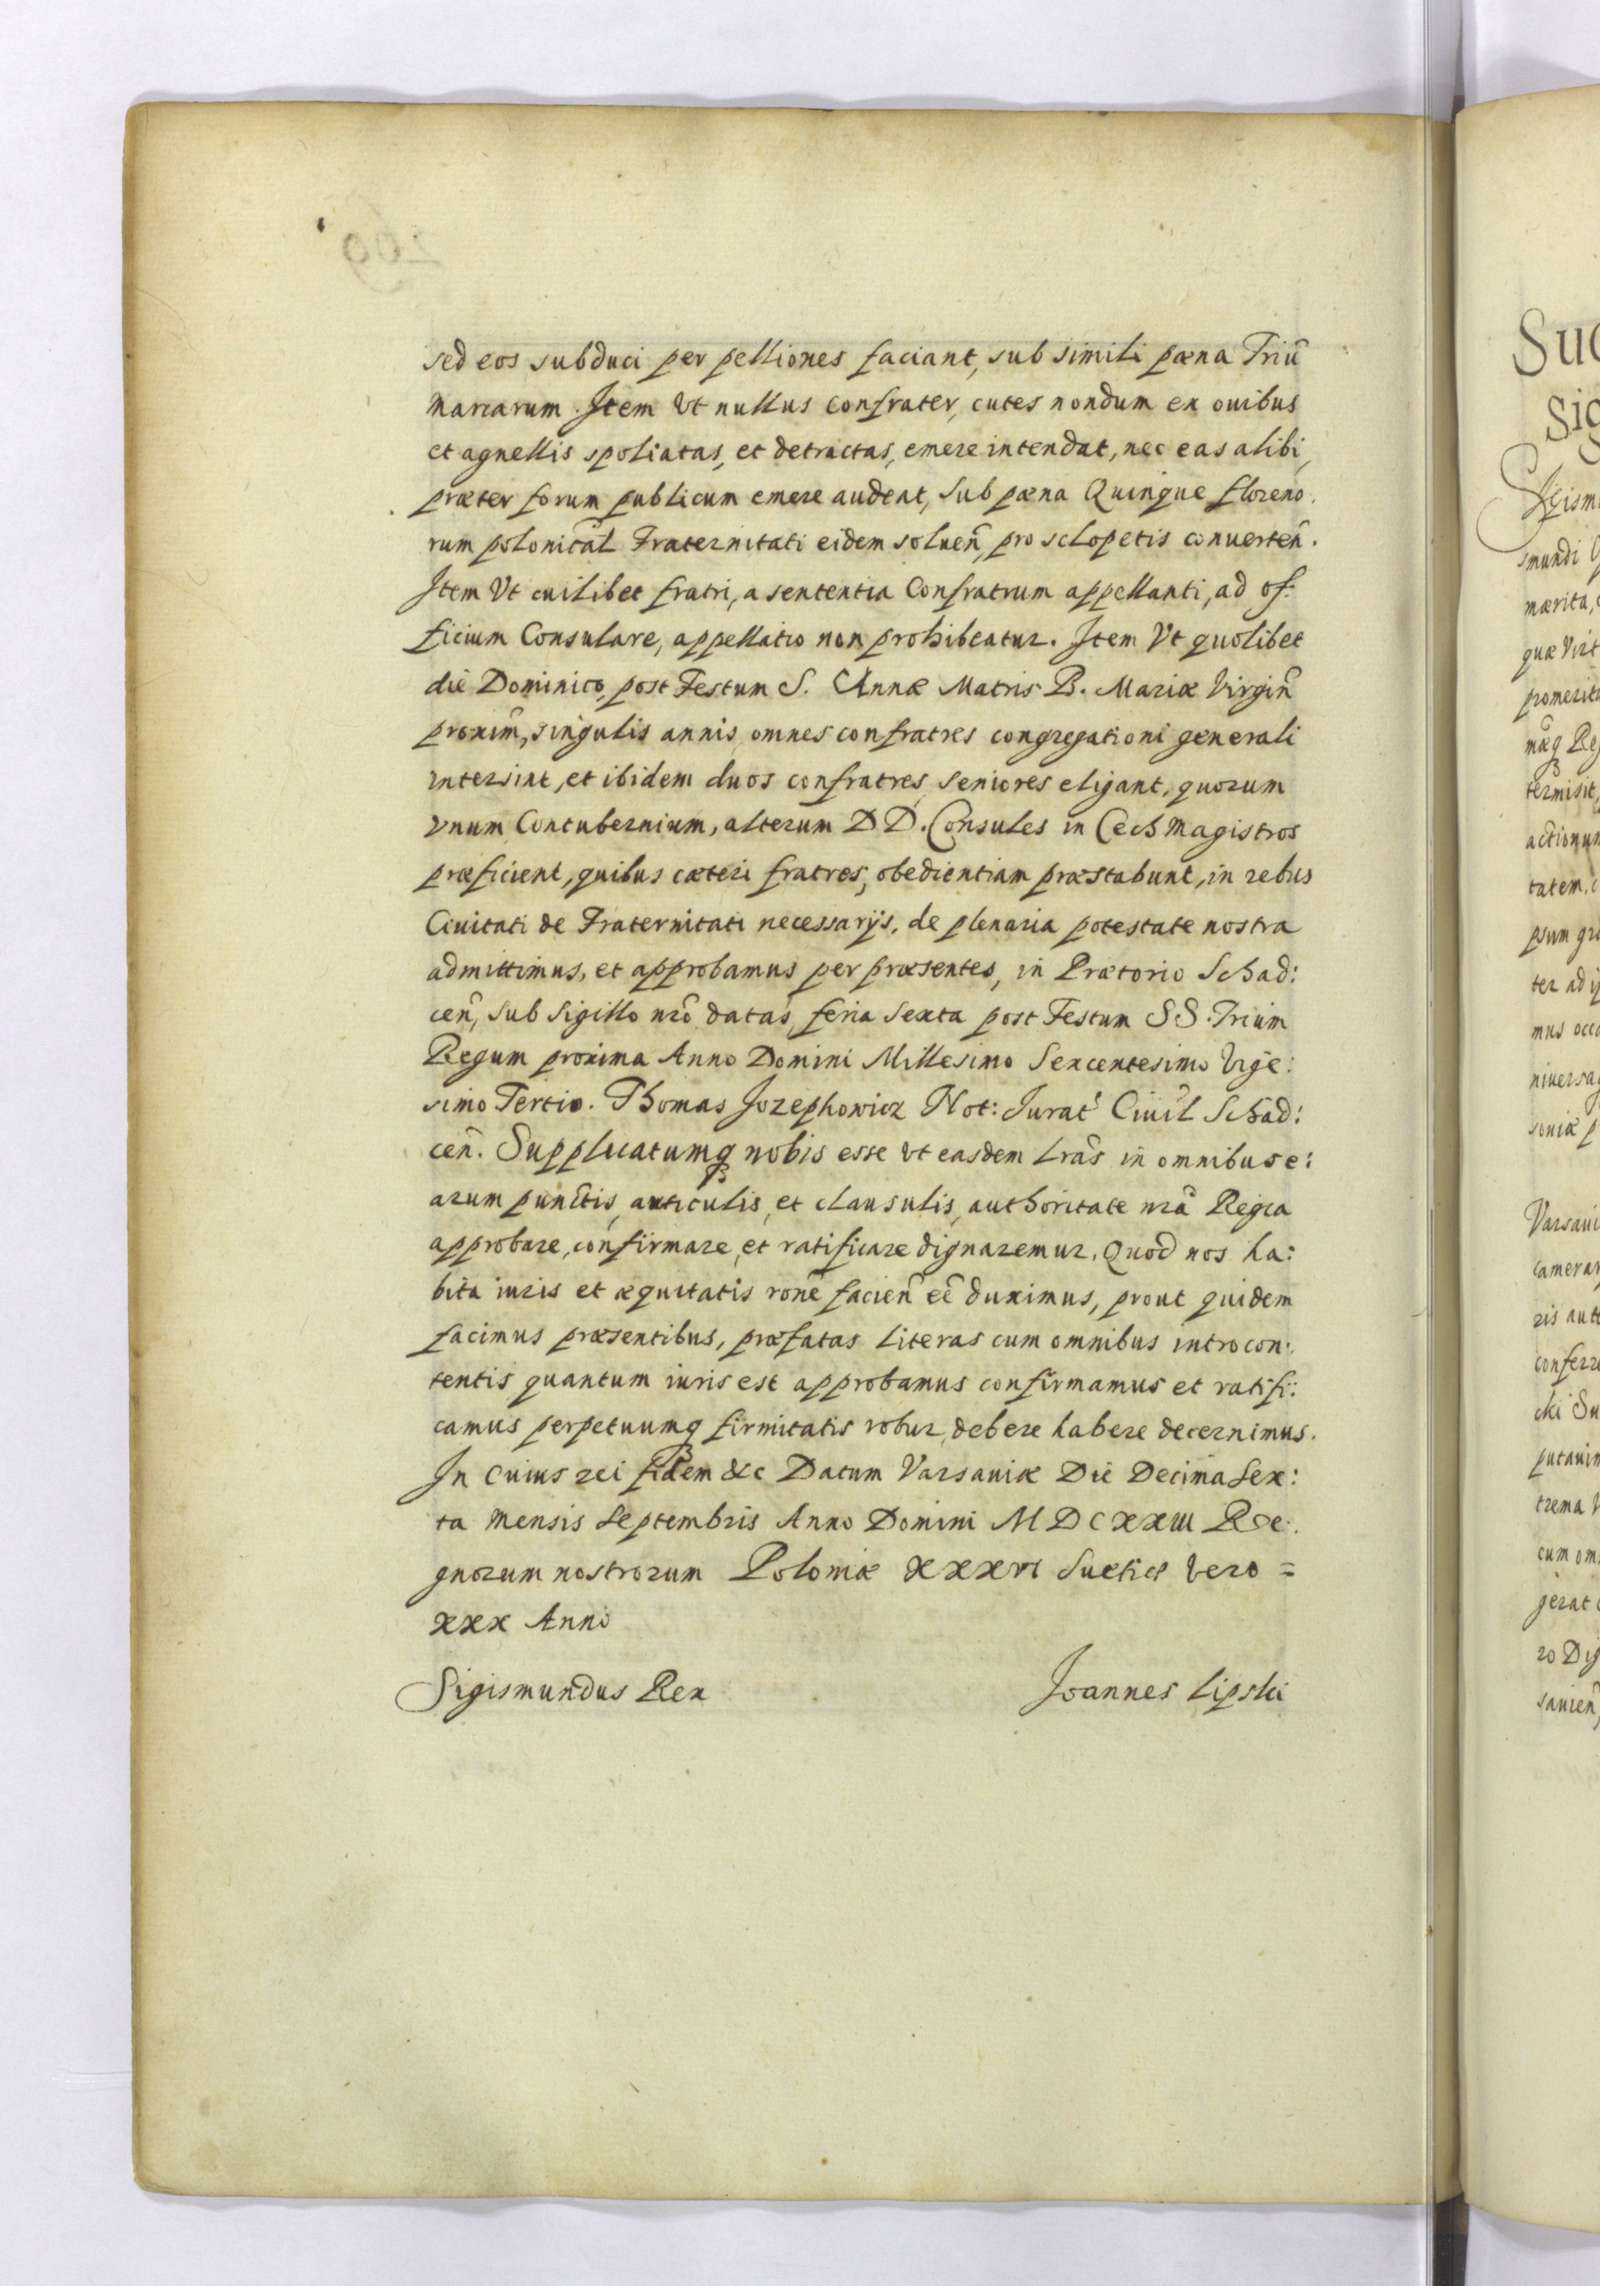 sed eos subduci per pelliones faciant, sub simili pæna Triū
Marcarum. Item Vt nullus confrater, cutes nondum ex ouibus
et agnellis spoliatas, et detractas, emere intendat, nec eas alibi,
præter forum publicum emere audeat, sub pæna Quinque floreno.
rum polonicāl Fraternitati eidem soluen̄, pro sclopetis conuerten̄.
Item Vt cuilibet fratri, a sententia Confratrum appellanti, ad of:
ficium Consulare, appellatio non prohibeatur. Item Vt quolibet
die Dominico post Festum S. Annæ Matris B. Mariæ Virgin̄
proxim̄, singulis annis omnes confratres congregationi generali
intersint, et ibidem duos confratres seniores eligant, quorum
vnum Contubernium, alterum DD. Consules in Cech Magistros
præficient, quibus cæteri fratres, obedientiam præstabunt, in rebus
Ciuitati de Fraternitati necessarijs, de plenaria potestate nostra
admittimus, et approbamus per præsentes, in Prætorio Schad:
cen̄, sub Sigillo nr̄o datas, feria sexta post Festum SS. Trium
Regum proxima Anno Domini Millesimo Sexcentesimo Vige:
simo Tertio. Thomas Jozephowicz Not: Jurat Ciuil Schad:
cen̄. Supplicatumq3 nobis esse vt easdem Lrās in omnibus e:
arum punctis, articulis, et clausulis, authoritate nrā Regia
approbare, confirmare, et ratificare dignaremur. Quod nos ha:
bita iuris et æquitatis ronē facien̄ eē duximus, prout quidem
facimus præsentibus, præfatas literas cum omnibus introcon:
tentis quantum iuris est approbamus confirmamus et ratifi:
camus perpetuumq3 firmitatis robur, debere habere decernimus.
In Cuius rei fidem &c Datum Varsauiæ Die Decima Sex:
ta Mensis Septembris Anno Domini MDCXXIII Re:
gnorum nostrorum Poloniæ XXXVI Suetiæ Vero =
XXX Anno
Sigismundus Rex Joannes Lipski
Sigism
smundi
quæ Virt
termisit,
tatem,
ter ad
mus occa
cum om